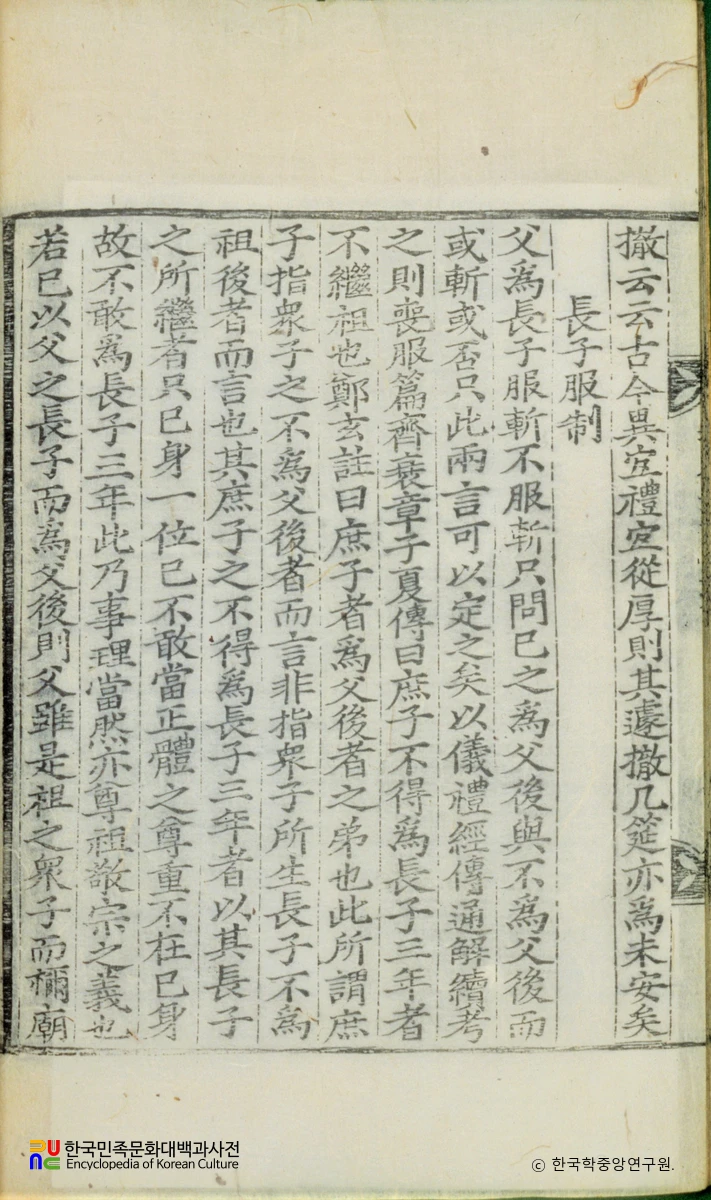 撤云云古今異宜禮宜從厚則其遽撤几筵亦爲未安矣
長子服制
父爲長子服斬不服斬只問已之爲父後與不爲父後而
或斬或否只此兩言可以定之矣以儀禮經傳通解續考
之則喪服篇齊衰章子夏傳曰庶子不得爲長子三年者
不繼祖也鄭玄註曰庶子者爲父後者之弟也此所謂庶
子指衆子之不爲父後者而言非指衆子所生長子不爲
祖後者而言也其庶子之不得爲長子三年者以其長子
之所繼者只已身一位已不敢當正體之尊重不在已身
故不敢爲長子三年此乃事理當然亦尊祖敬宗之義也
若已以父之長子而爲父後則父雖是祖之衆子而禰廟
한국민족문화대백과사전
Encyclopedia of Korean Culture
© 한국학중앙연구원.